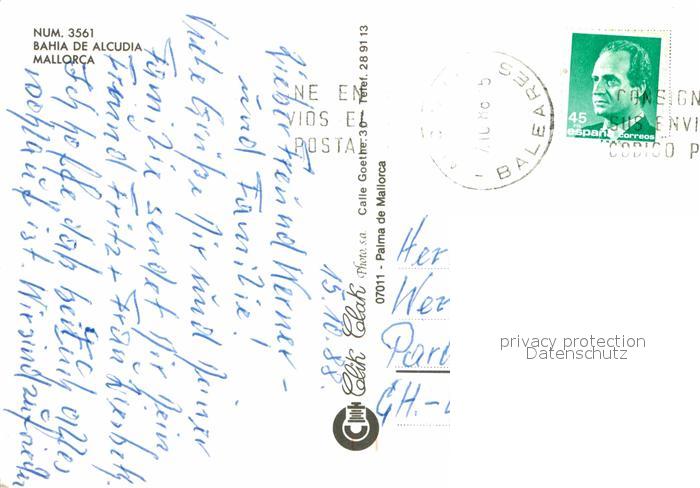 NUM. 3561
BAHIA DE ALCUDIA
MALLORCA
Lieber Freund Werner -
und Familie!
Viele Grüße Dir und Deiner
Familie sendet Dir Dein
Freund Fritz + Frau
Ich hoffe daß bei Euch alles
wohlauf ist. Wir sind zufrieden
15.10.88.
Clik Clak Photo, s.a. Calle Goethe, 30 - Telef. 28 91 13
07011 - Palma de Mallorca
NE EN
VIOS EL
POSTA
BALEARES
CONSIGN
SUS ENVI
CODIGO P
45
españa correos
Her
Wer
CH.-
privacy protection
Datenschutz